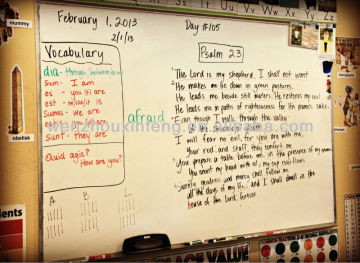 February 1, 2013
2/1/13
Day #105
Vocabulary
dia - through, between, across
sum - I am
es - you (s) are
est - he/she/it is
sumus - we are
estis - you (pl) are
sunt - they are
Quid agis?
How are you?
afraid
Psalm 23
The Lord is my shepherd, I shall not want.
He makes me lie down in green pastures.
He leads me beside still waters, He restores my soul.
He leads me in paths of righteousness for His name's sake.
Even though I walk through the valley
I will fear no evil, for you are with me
Your rod and staff, they comfort me
You prepare a table before me in the presence of my
You anoint my head with oil, my cup overflows
Surely goodness and mercy shall follow me
all the days of my life, And I shall dwell in the
House of the Lord forever.
A B
mummy
obelisk
wenzhouxinfeng.en.alibaba.com
Students